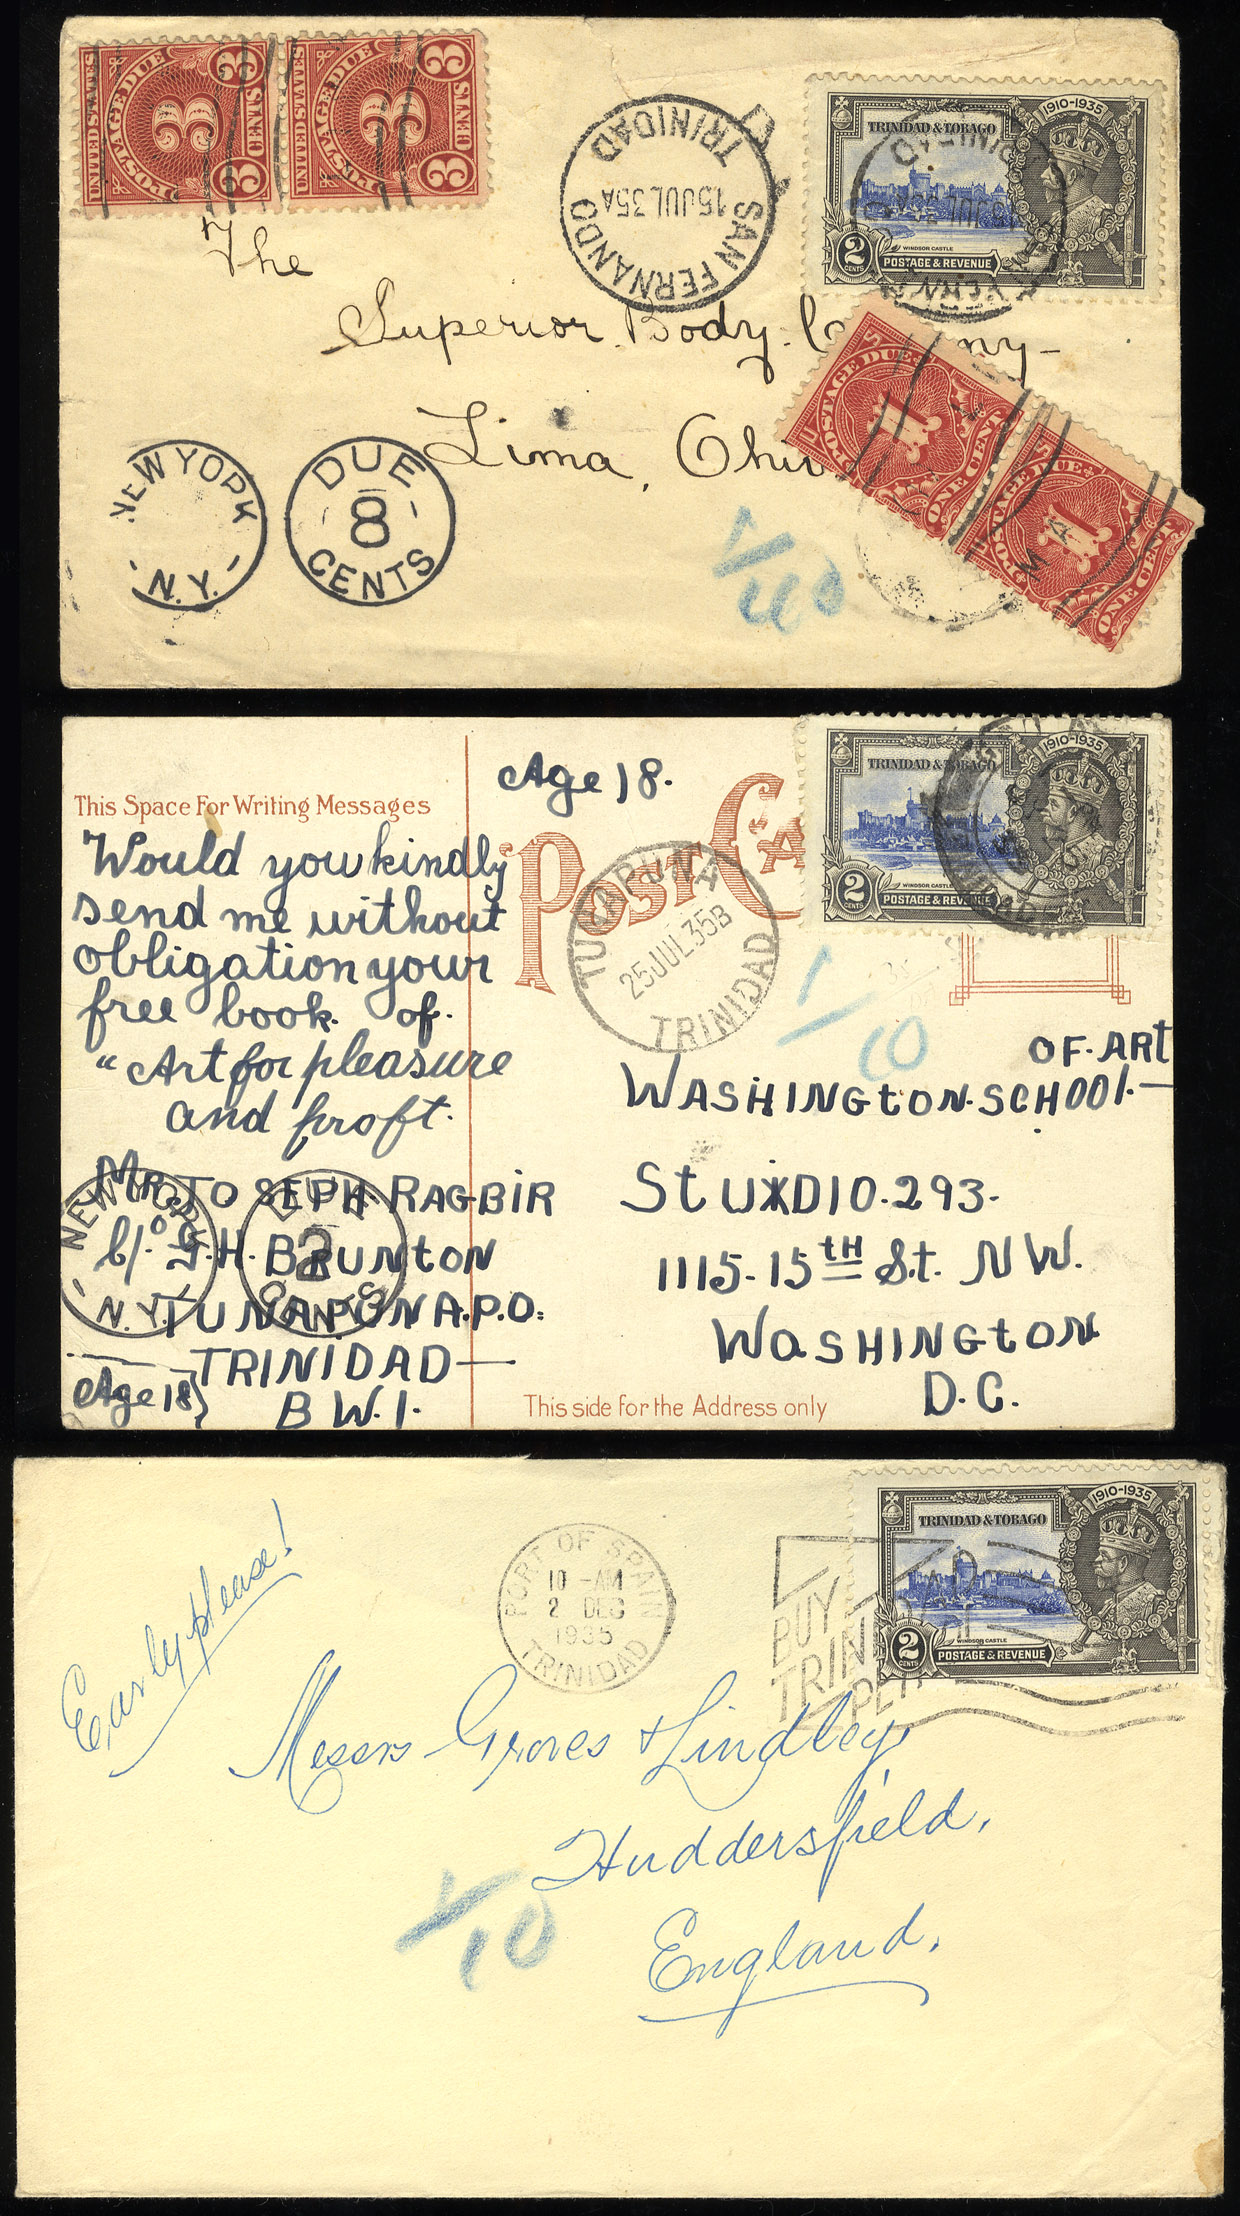 UNITED STATES
POSTAGE DUE
3
3
3
UNITED STATES
POSTAGE DUE
3
3
3
SAN FERNANDO
15JUL35A
TRINIDAD
1910-1935
TRINIDAD & TOBAGO
WINDSOR CASTLE
2
CENTS
POSTAGE & REVENUE
The
Superior Body
Lima, Ohio
POSTAGE DUE
1
ONE CENT
1
ONE CENT
NEW YORK
N.Y.
DUE
8
CENTS
1/40
This Space For Writing Messages
Would you kindly
send me without
obligation your
free book of
"Art for pleasure
and proft.
Mr. JOSEPH RAGBIR
c/o G.H. BRUNTON
TUNAPUNA.P.O.
TRINIDAD—
B W.I.
Age 18
NEW YORK
N.Y.
DUE
2
CENTS
Age 18.
POST CA
TUNAPUNA
25JUL35B
TRINIDAD
1910-1935
TRINIDAD & TOBAGO
WINDSOR CASTLE
2
CENTS
POSTAGE & REVENUE
1/10
OF. ART
WASHINGtON. SCHOOl.—
StUDIO. 293-
1115-15tH St. NW.
WaSHINGtON
D.C.
This side for the Address only
Early please!
PORT OF SPAIN
10 -AM
2 DEC
1935
TRINIDAD
BUY
TRIN
1910-1935
TRINIDAD & TOBAGO
WINDSOR CASTLE
2
CENTS
POSTAGE & REVENUE
Messrs Groves & Lindley,
Huddersfield,
England,
1/10